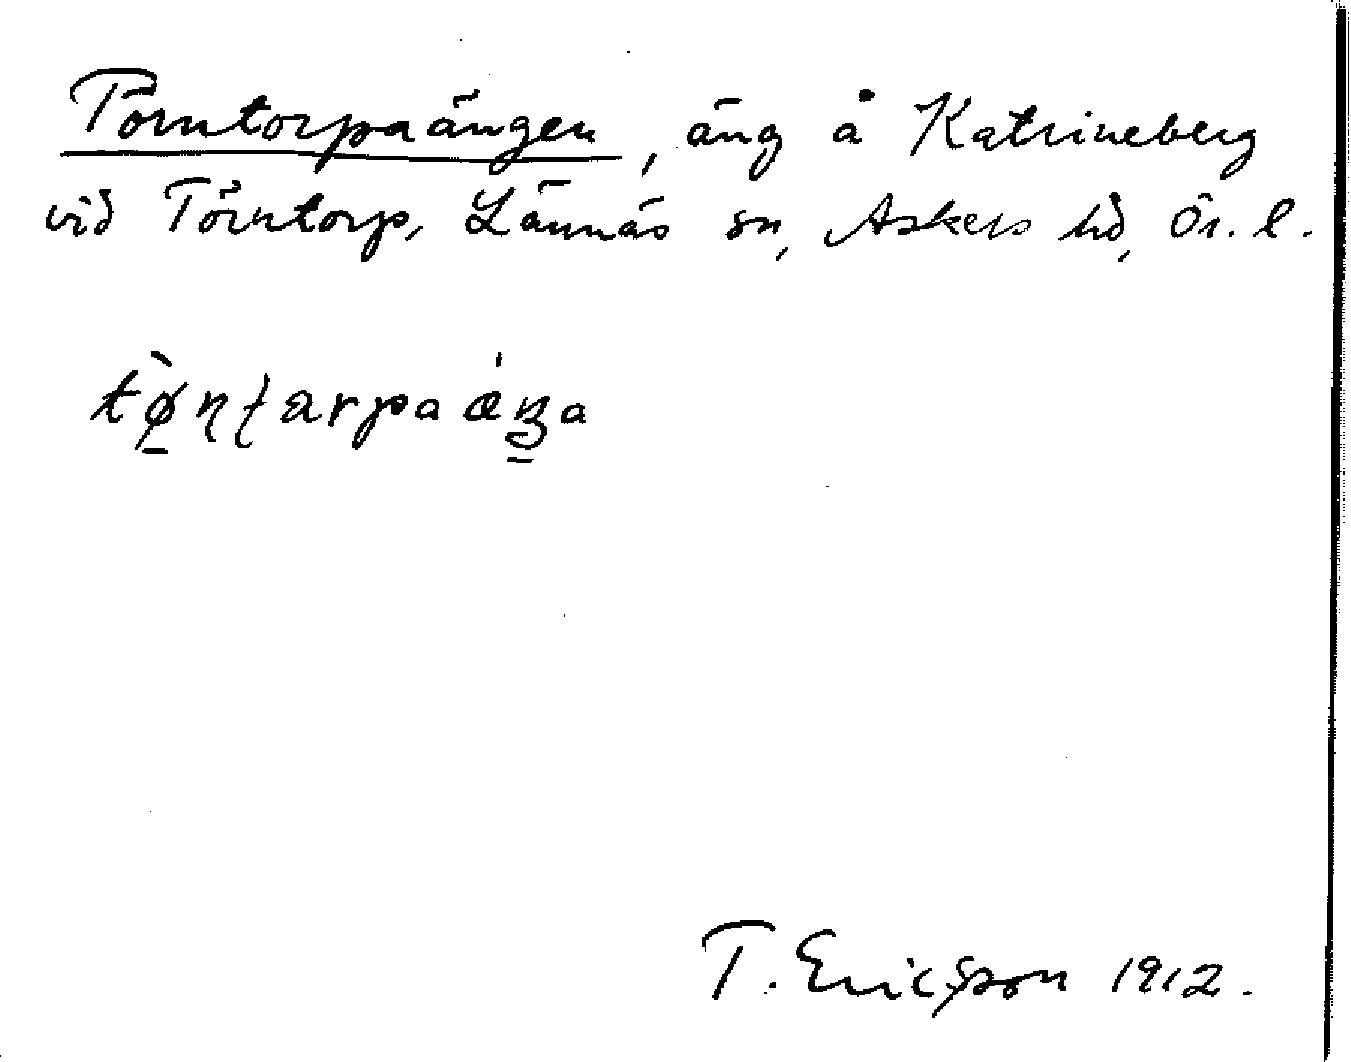 Törntorpaängen, äng å Katrineberg
vid Törntorp, Lännäs sn, Askers hd, Ör. l.
T. Ericsson 1912.